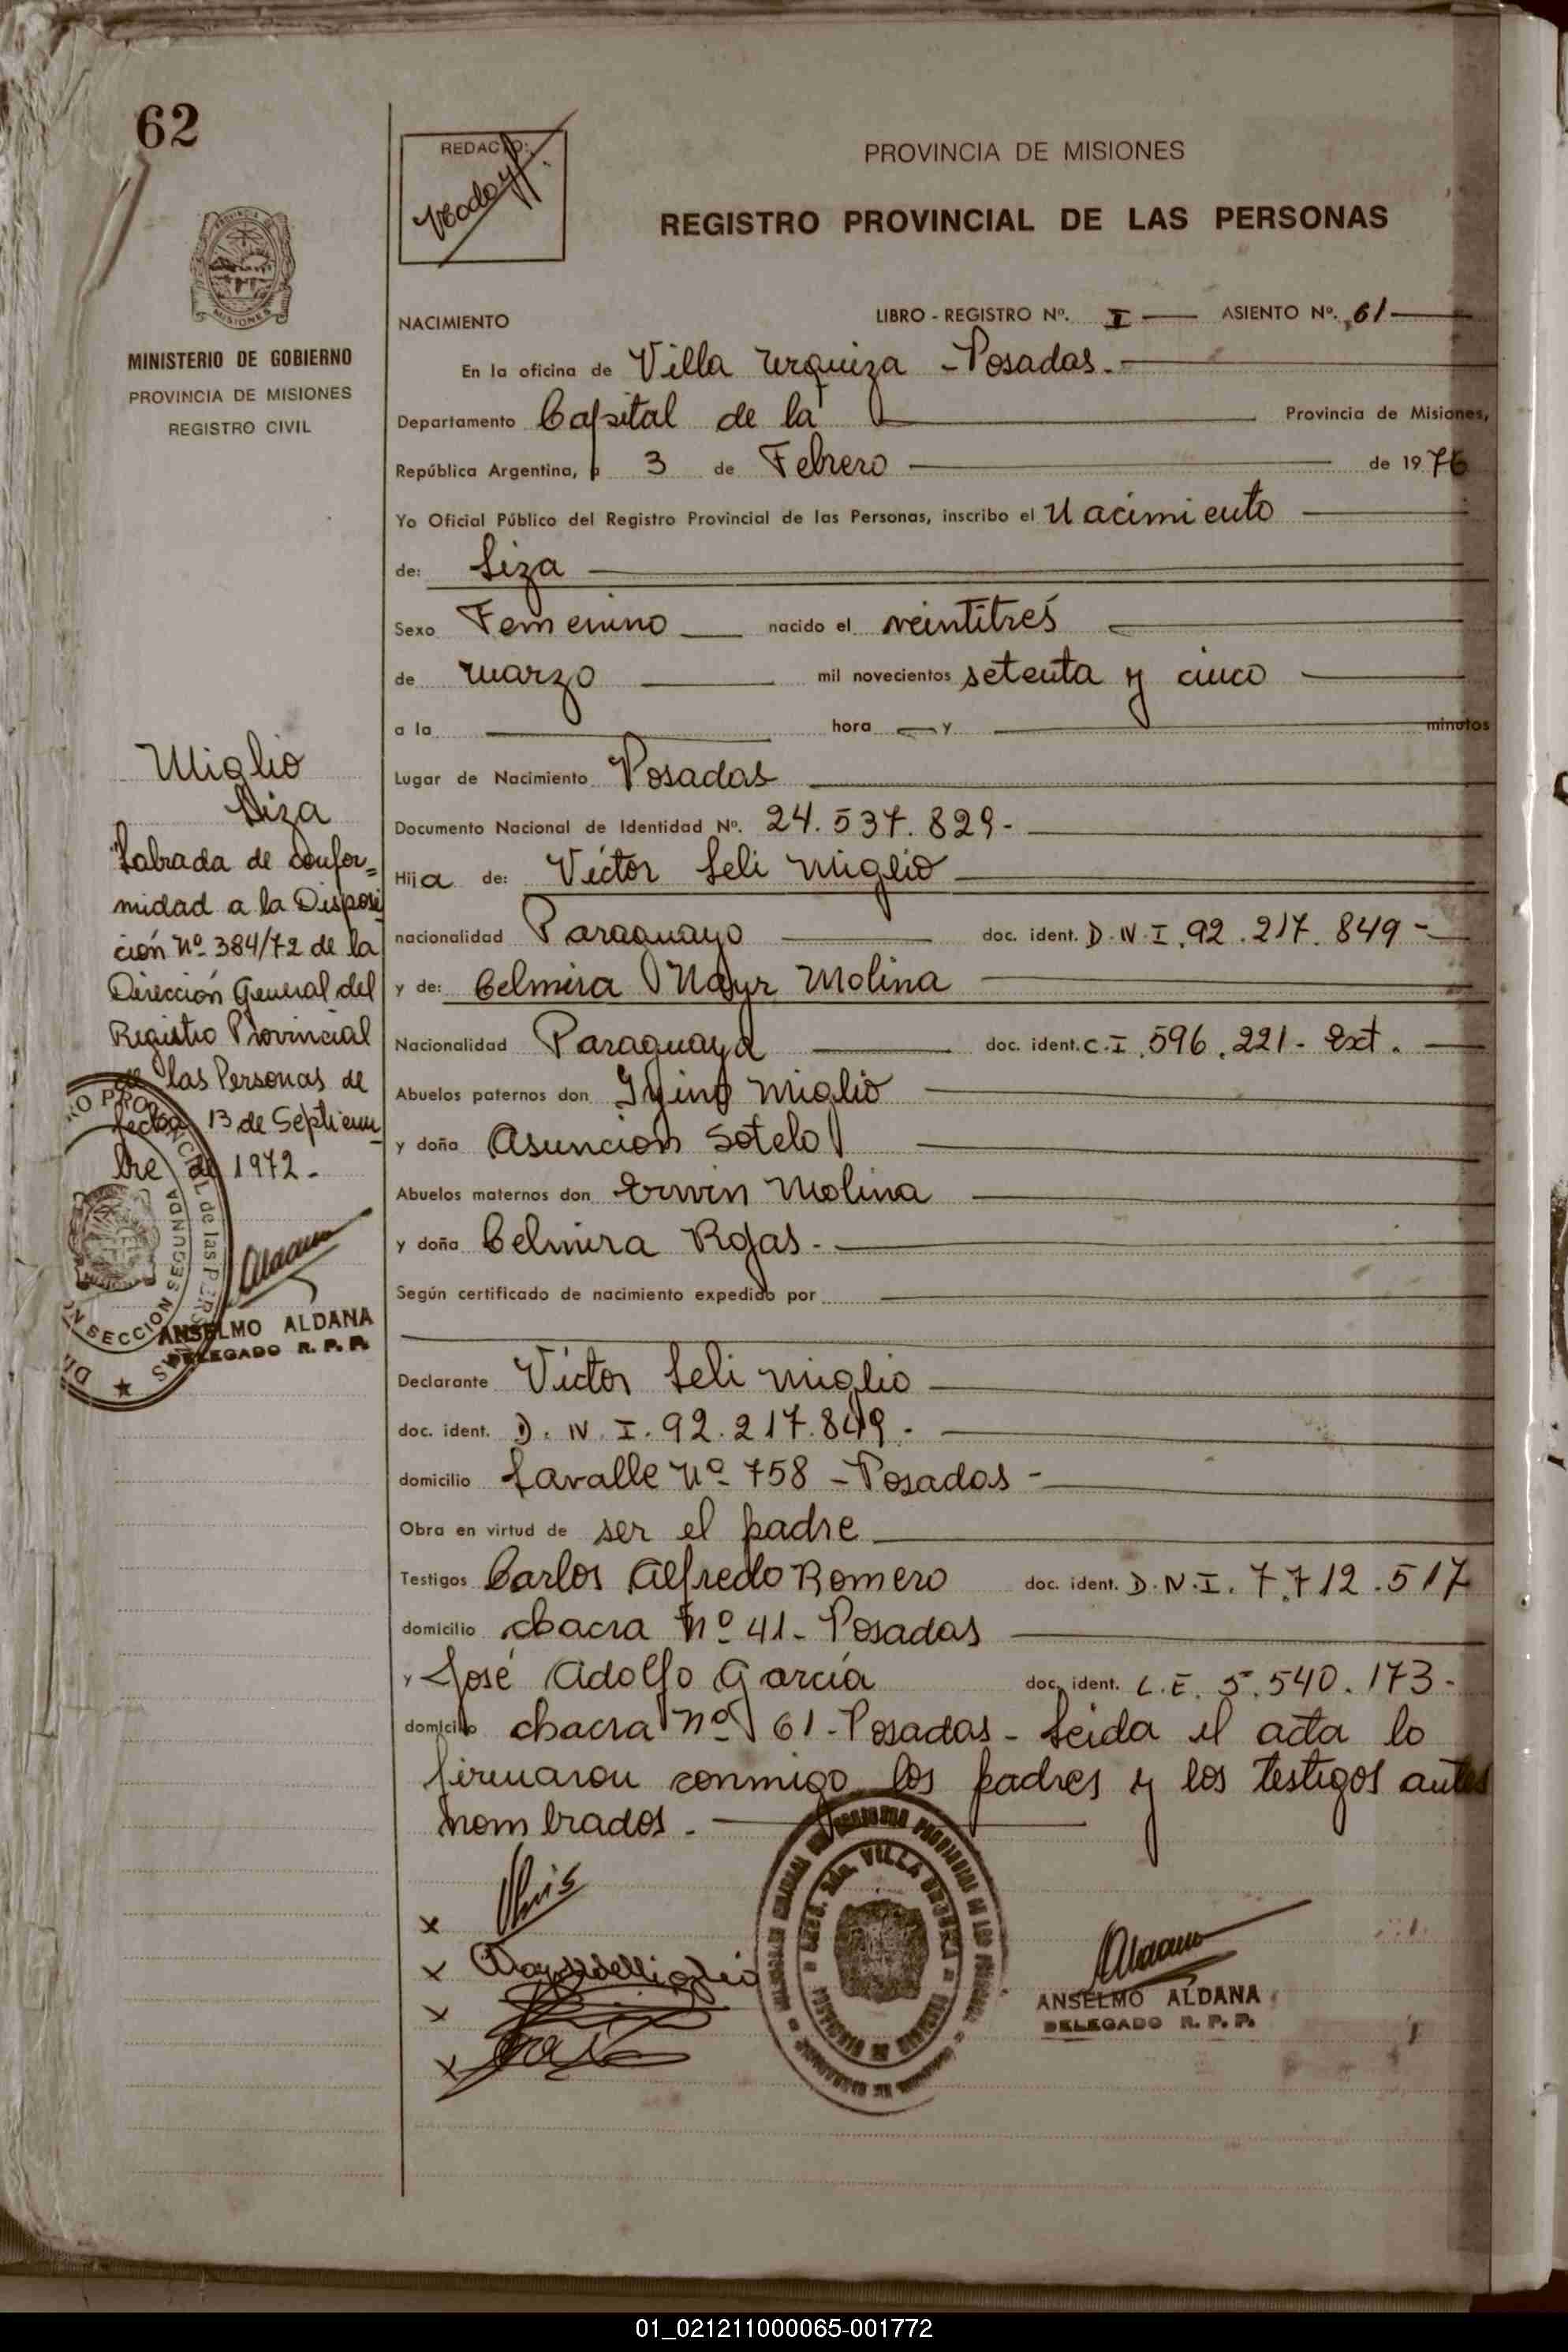 62
REDACTO:
PROVINCIA DE MISIONES
REGISTRO PROVINCIAL DE LAS PERSONAS
MISIONES
MINISTERIO DE GOBIERNO
PROVINCIA DE MISIONES
REGISTRO CIVIL
NACIMIENTO LIBRO - REGISTRO Nº. I ASIENTO Nº. 61
En la oficina de Villa Urquiza - Posadas.
Departamento Capital de la Provincia de Misiones,
República Argentina, a 3 de Febrero de 1976
Yo Oficial Público del Registro Provincial de las Personas, inscribo el Nacimiento
de: Liza
Sexo Femenino nacido el veintitrés
de marzo mil novecientos setenta y cinco
a la hora y minutos
Lugar de Nacimiento Posadas
Documento Nacional de Identidad Nº. 24.537.829-
Hija de: Víctor Leli Miglio
nacionalidad Paraguayo doc. ident. D.N.I. 92.217.849-
y de: Celmira Nayr Molina
Nacionalidad Paraguaya doc. ident. C.I. 596.221- Ext.
Abuelos paternos don Igino Miglio
y doña Asunción Sotelo
Abuelos maternos don Erwin Molina
y doña Celmira Rojas.-
Según certificado de nacimiento expedido por
Declarante Víctor Leli Miglio
doc. ident. D.N.I. 92.217.849.-
domicilio Lavalle Nº 758 - Posadas -
Obra en virtud de ser el padre
Testigos Carlos Alfredo Romero doc. ident. D.N.I. 7.712.517
domicilio chacra Nº 41- Posadas
y José Adolfo García doc. ident. L.E. 5.540.173-
domicilio chacra nº 61- Posadas - Leida el acta lo
firmaron conmigo los padres y los testigos antes
nombrados.-
Miglio
Liza
Labrada de confor=
midad a la Disposi
ción Nº 384/72 de la
Dirección General del
Registro Provincial
de las Personas de
fecha 13 de Septiem
bre de 1972.-
ANSELMO ALDANA
DELEGADO R. P. P.
SECCION SEGUNDA
x
x
x
x
VILLA URQUIZA
ANSELMO ALDANA
DELEGADO R. P. P.
01_021211000065-001772